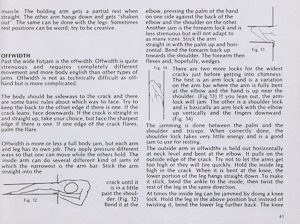 muscle. The holding arm gets a partial rest when
straight. The other arm hangs down and gets "shaken
out". The same can be done with the legs. Sometimes
rest positions can be weird; try to be creative.
OFFWIDTH
Past the wide fistjam is the offwidth. Offwidth is quite
strenuous and requires completely different
movement and more body english than other types of
jams. Offwidth is not as technically difficult as off-
hand but is more complicated.
The body should be sideways to the crack and there
are some basic rules about which way to face. Try to
keep the back to the offset edge if there is one. If the
crack leans, face downwards. If the crack is straight in
and straight up, take your choice, but face the sharpest
edge if there is one. If one edge of the crack flares,
palm the flare.
Offwidth is more or less a full body jam, but each arm
and leg has its own job. They apply pressure different
ways so that one can move while the others hold. The
inside arm can do several different kind of jams of
which the narrowest is the arm bar. Stick the arm
straight into the
crack until it
is in a little
past the shoul-
der (Fig. 12)
Bend it at the
Fig. 12
elbow, pressing the palm of the hand
on one side against the back of the
elbow and the shoulder on the other.
Another jam is the forearm lock and is
less strenuous but will not adapt to
as many sizes. Stick the arm
straight in with the palm up and hori-
zontal. Bend the forearm back up
towards the shoulder. The forearm then
flexes and, hopefully, wedges.
Fig. 13
Fig. 14
There are two more locks for the widest
cracks just before getting into chimneys.
The first is an arm lock and is a variation
on the arm bar where the arm is fully bent
at the elbow and the hand is up near the
shoulder (Fig.13) If you lean out, the arm-
lock will jam. The other is a shoulder lock
and is basically an arm lock with the elbow
up vertically and the fingers downward.
(Fig. 14)
The jamming is done between the palm and the
shoulder and triceps. When correctly done, the
shoulder lock takes very little energy and is a good
jam to use for resting.
The outside arm in offwidth is held out horizontally
at neck level and bent at the elbow. It pulls on the
outside edge of the crack. Try not to let the arms get
too high or they will tire quickly. Hold the inside leg
high in the crack. When it is bent at the knee, the
lower portion of the leg hangs straight down. To make
it stick, bend the ankle to the inside, then twist the
rest of the leg in the same direction.
At times the inside leg can be jammed by doing a knee
lock. Hold the leg in the above position but instead of
twisting it, bend the lower leg further back. The knee
41